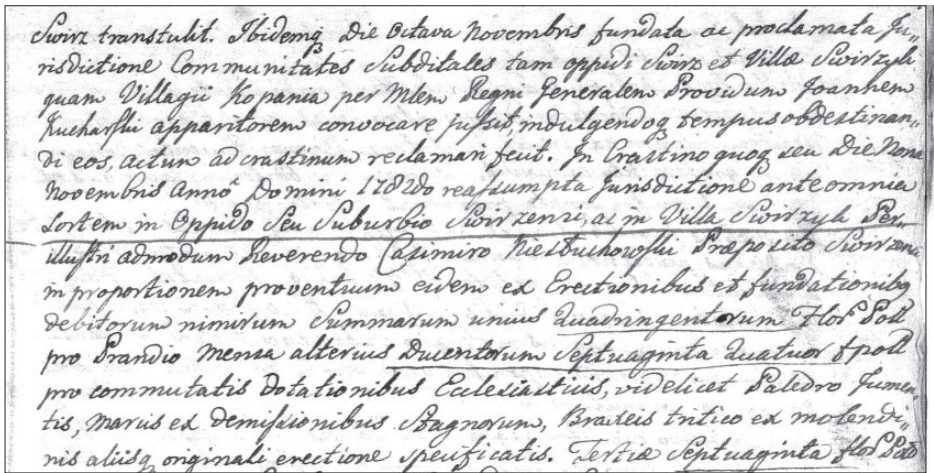 Swirz transtulit. Ibidemq₃ die Octava Novembris fundata ac proclamata Ju„
risdictione Communitates Subditales tam oppidi Swirz et Villæ Swirzyk
quam Villagii Kopania per Mlem Regni Generalem Providum Joannem
Kucharski apparitorem convocare jussit, indulgendoq₃ tempus obdestinan„
di eos, actum ad crastinum reclamari fecit. In Crastino quoq₃ seu die Nona
Novembris Anno Domini 1782do reassumpta Jurisdictione ante omnia
Sortem in Oppido Seu Suburbio Swirzensi, ac in Villa Swirzyk Per„
illustri admodum Reverendo Casimiro Niestuchowski Præposito Swirzensi
in proportionem proventuum eidem ex Erectionibus et fundationibq₃
debitorum nimirum Summarum unius Quadringentorum Flor Poll
pro Prandio Mensa alterius Ducentorum Septuaginta Quatuor f poll
pro commutatis dotationibus Ecclesiasticis, videlicet Jumen„
tis, ex demissionibus Stagnorum, Braxeis tritico ex molendi„
nis aliisq₃ originali erectione specificatis. Tertiæ Septuaginta flor Poll